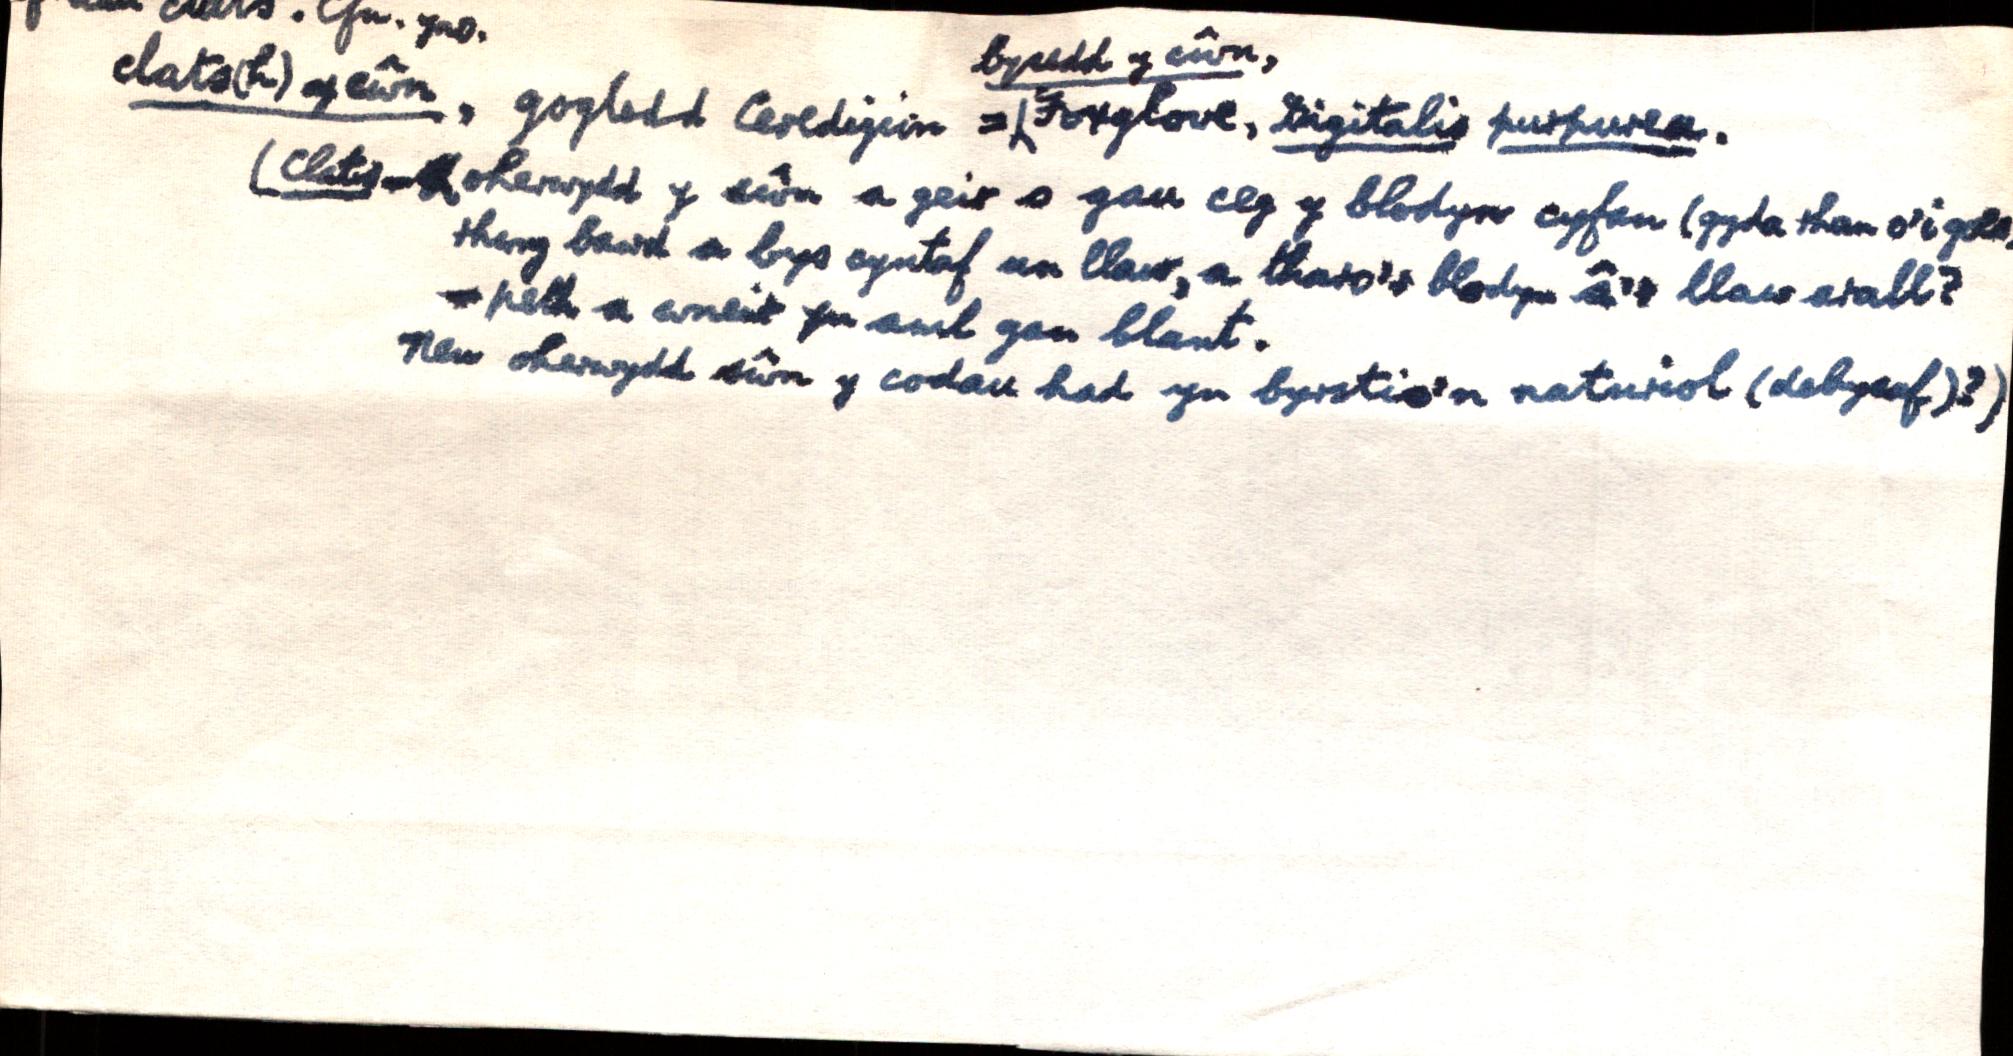 clats. Cfn. yno.
clats(h) y cŵn, gogledd Ceredigion = bysedd y cŵn, Foxglove, Digitalis purpurea.
(Clats - oherwydd y sŵn a geir o gau ceg y blodyn cyfan (gyda rhan o'i goes)
rhwng bawd a bys cyntaf un llaw, a tharo'r blodyn â'r llaw arall?
- peth a wneir yn aml gan blant.
Neu oherwydd sŵn y codau had yn byrstio'n naturiol (debycaf)?)